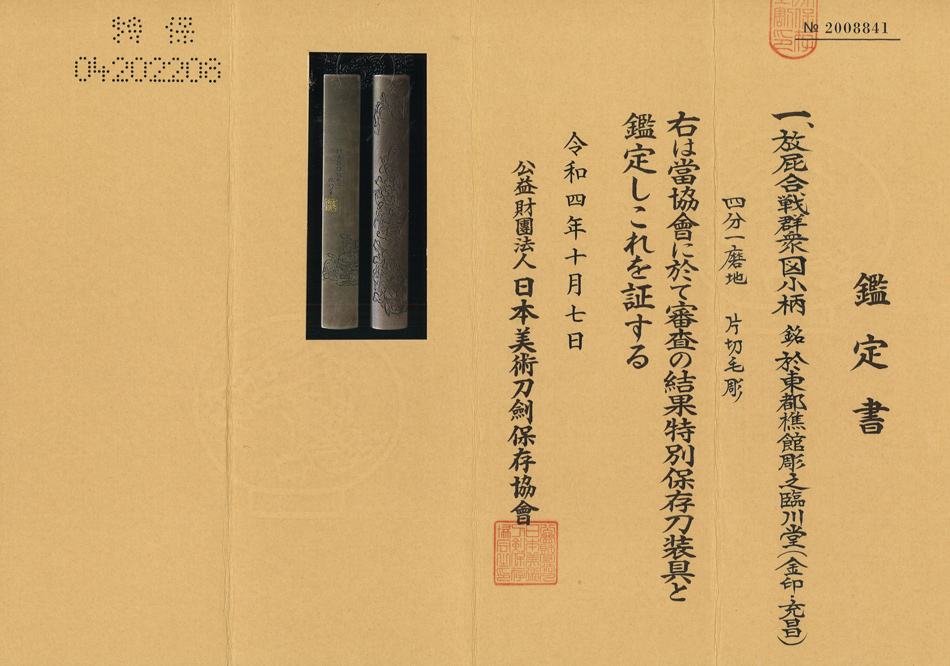 № 2008841
鑑定書
一、放屁合戦群衆図小柄 銘 於東都樵館彫之臨川堂(金印・充昌)
四分一磨地 片切毛彫
右は當協會に於て審査の結果特別保存刀装具と
鑑定しこれを証する
令和四年十月七日
公益財團法人 日本美術刀劍保存協會
特 保
04202208